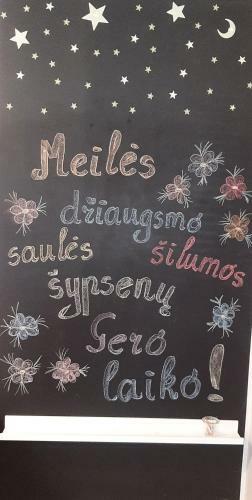 Meilės
džiaugsmo
saulės šilumos
šypsenų
Gero
laiko!